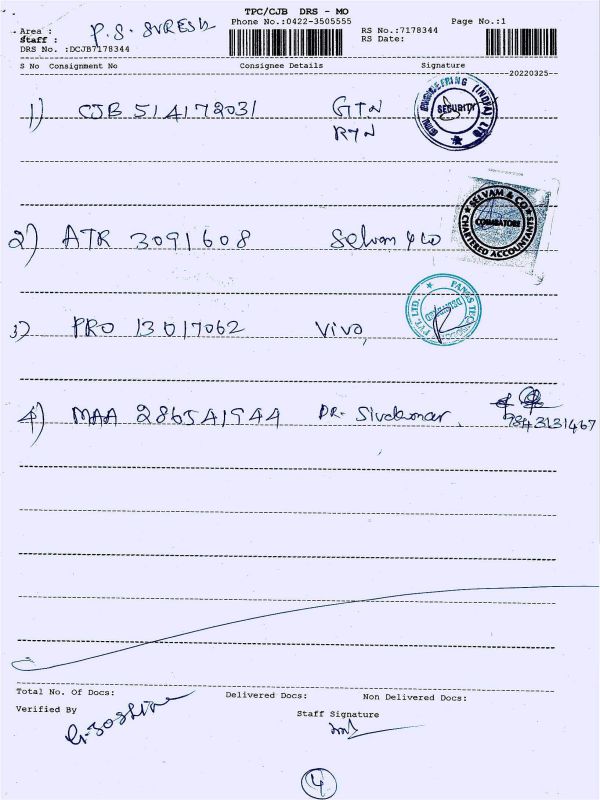 TPC/CJB DRS - MO
Phone No.:0422-3505555 Page No.:1
Area :
Staff : P.S. SURESH
RS No.:7178344
RS Date:
DRS No. :DCJB7178344
S No Consignment No Consignee Details Signature
20220325
1) CJB 514172031 GTN
RTN
ENGINEERING (INDIA) LTD
SECURITY
2) ATR 3091608 Selvam & Co
SELVAM & CO
COIMBATORE
CHARTERED ACCOUNTANTS
3) PRO 13017062 Vivo,
PVT. LTD.
4) MAA 286541944 DR. Sivakumar
9843131467
Total No. Of Docs: Delivered Docs: Non Delivered Docs:
Verified By
Staff Signature
4